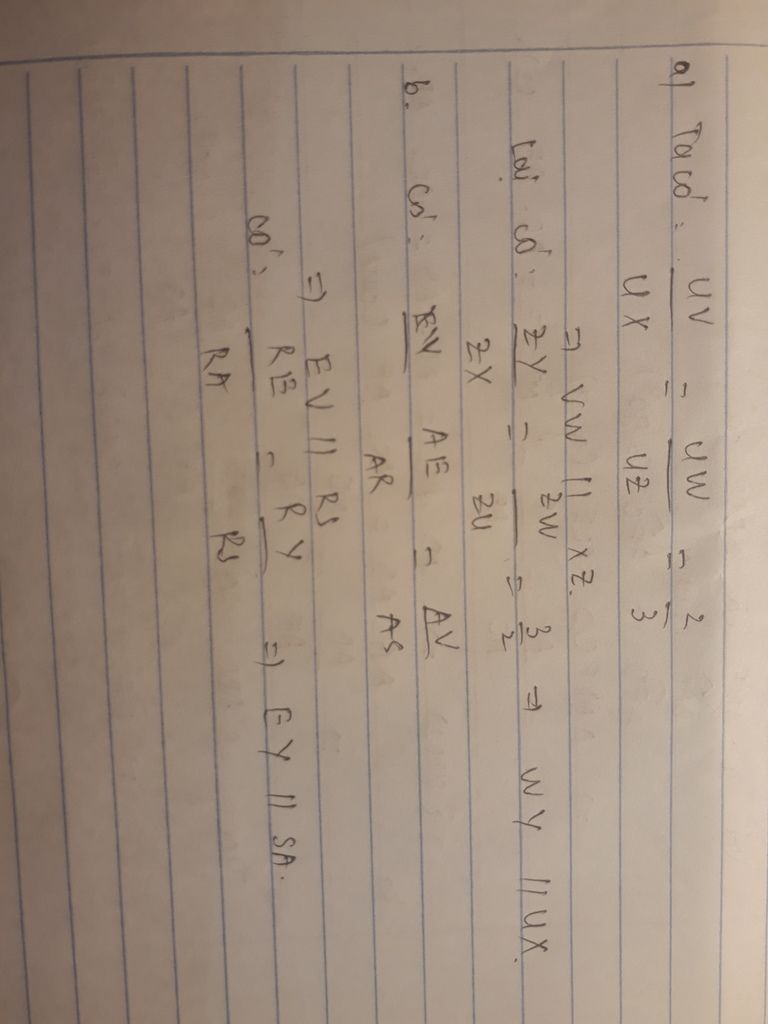 a) Ta có: UV/UX = UW/UZ = 2/3
=> VW // XZ.
Lại có: ZY/ZX = ZW/ZU = 3/2 => WY // UX.
b. Có: AE/AR = AV/AS
=> EV // RS
có: RE/RA = RY/RS => EY // SA.